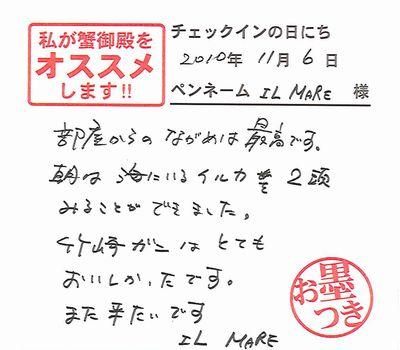 私が蟹御殿を
オススメ
します!!
チェックインの日にち
2010年 11月 6日
ペンネーム IL MARE 様
部屋からの ながめは 最高です。
朝は 海にいるイルカを 2頭
みることが できました。
竹崎ガニは とても
おいしかったです。
また 来たいです
IL MARE
お墨つき